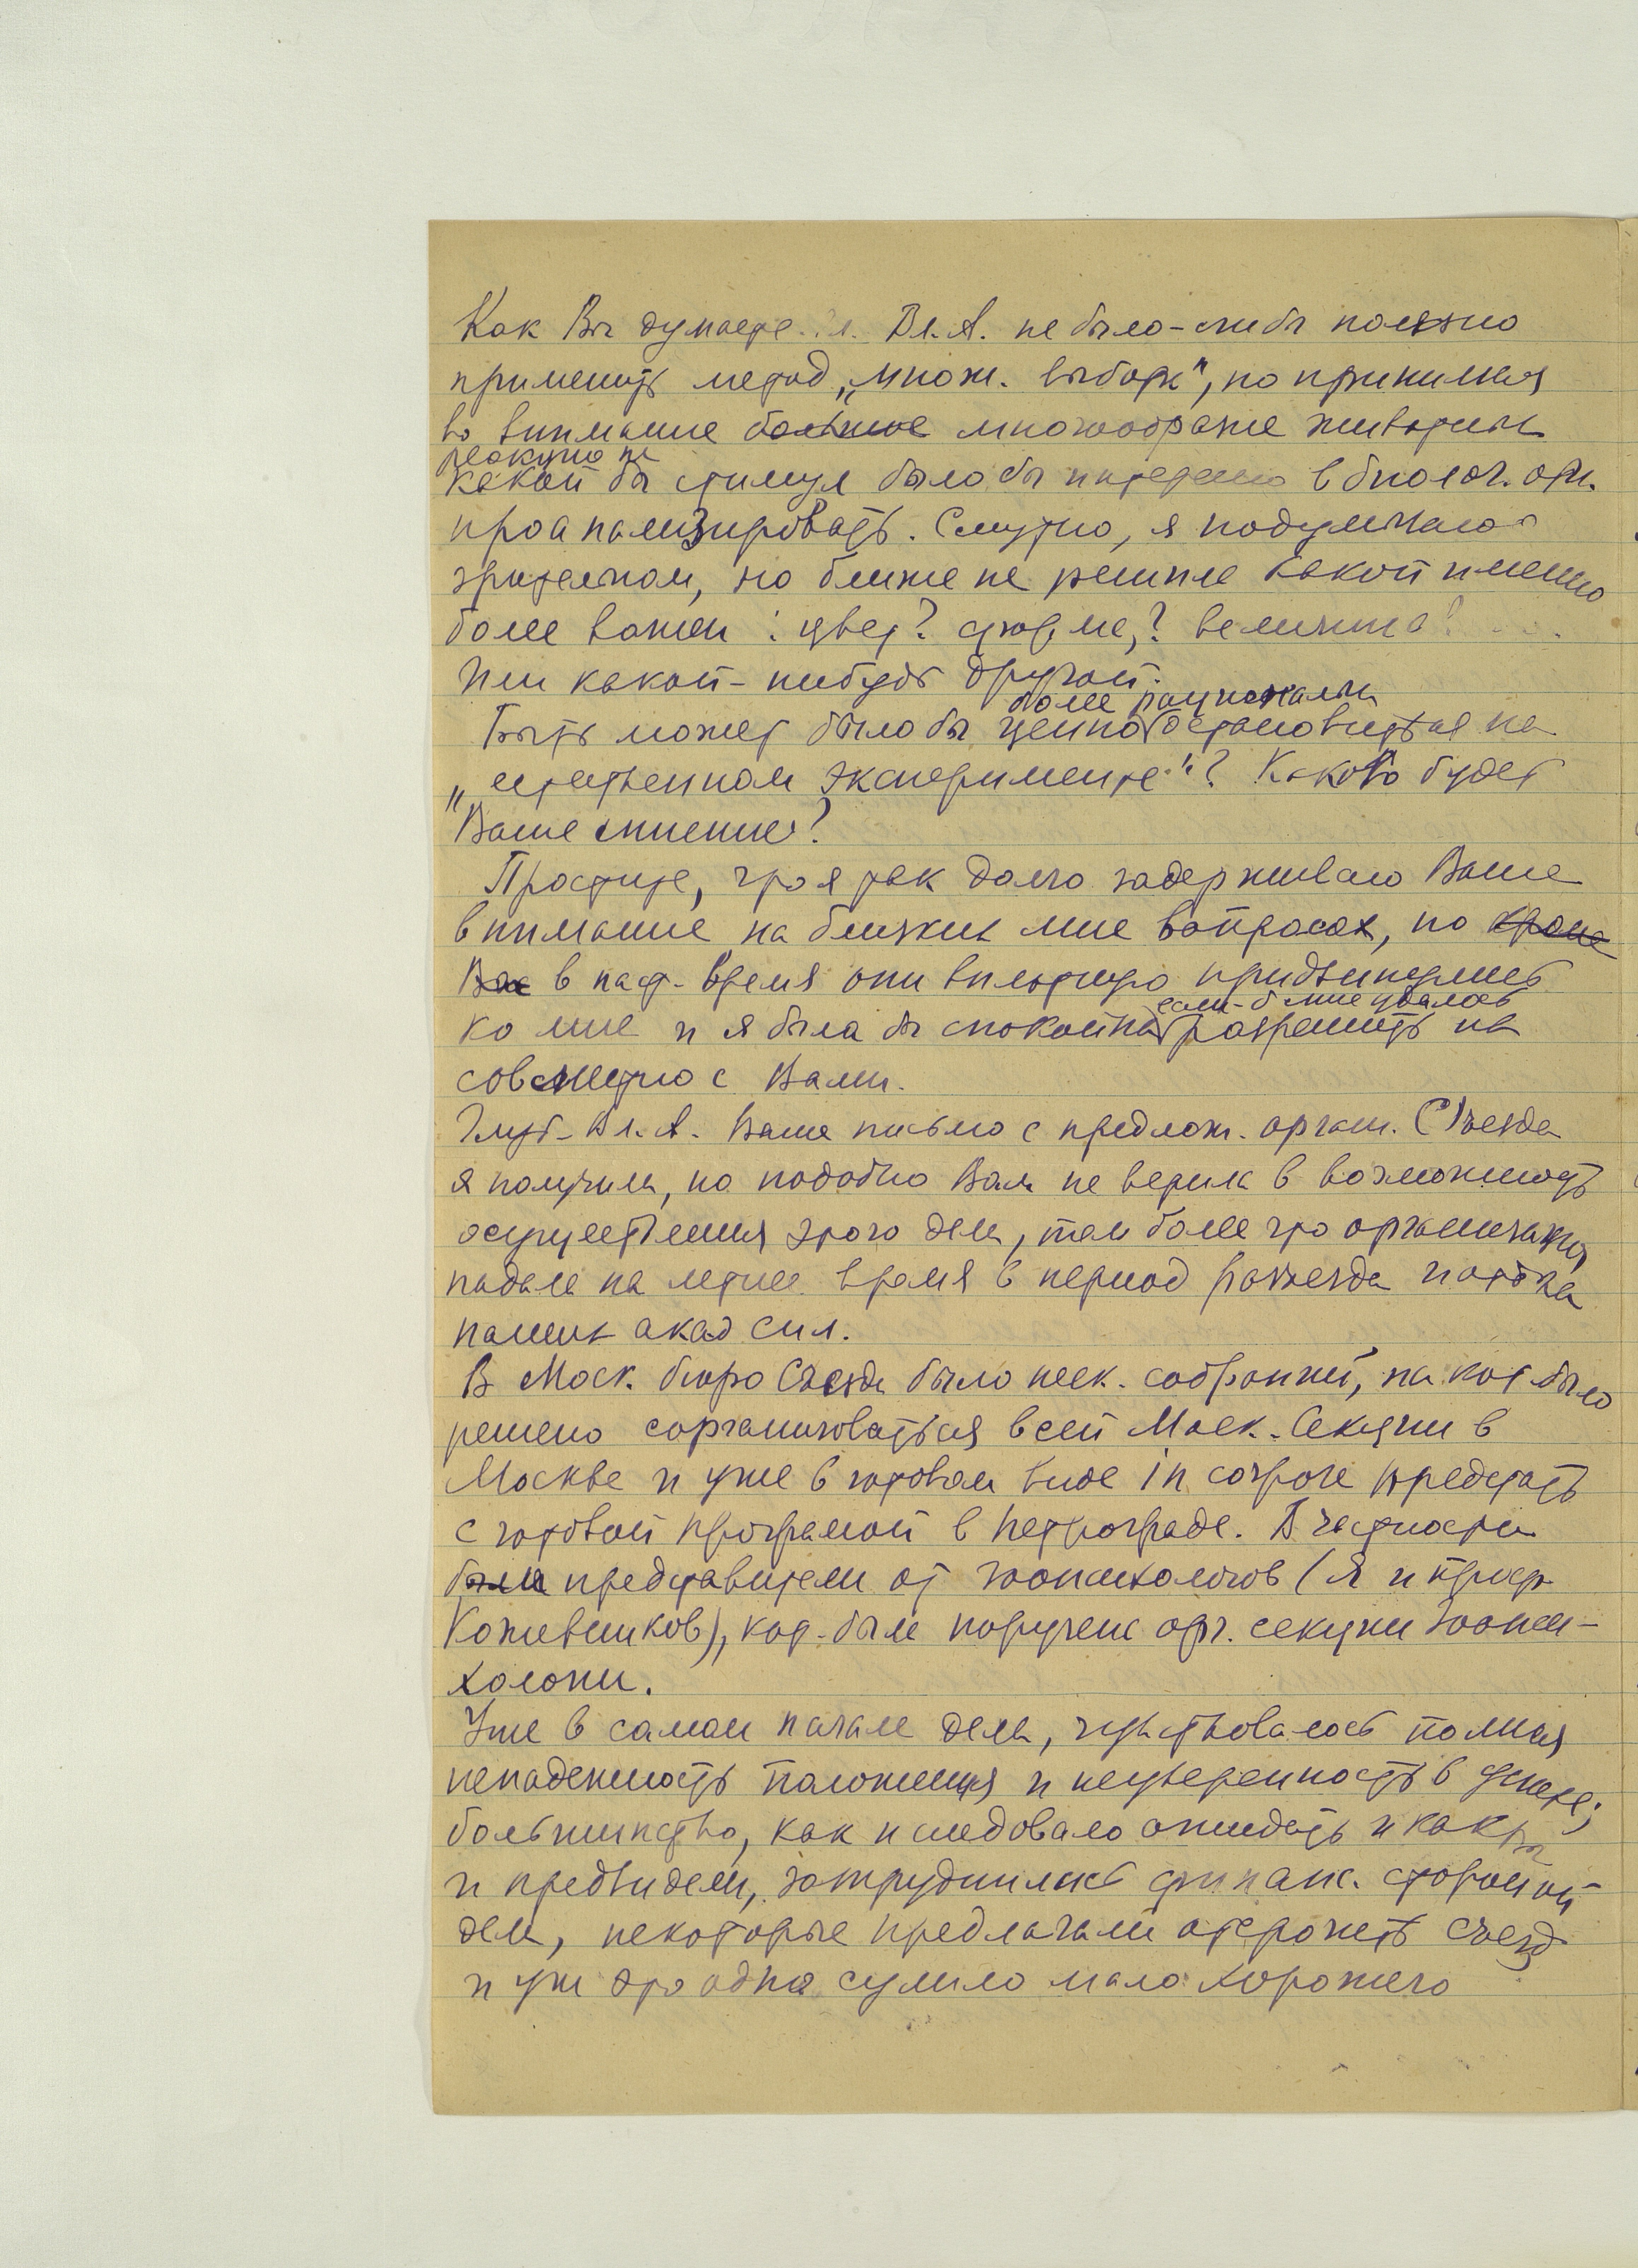 Как Вы думаете Гл. Вл. А. не было-ли бы полезно
применить метод „множ. выбора", но принимая
во внимание большое многообразие животных
реакцию на
какой бы стимул было бы интересно в биолог. отн.
проанализировать. Смутно, я подумываю о
зрительном, но ближе не решила какой именно
более важен: цвет? форма,? величина? ...
или какой-нибудь другой.
более рационально
Быть может было бы ценно остановиться на
„естественном эксперименте"? Каково будет
Ваше мнение?
Простите, что я так долго задерживаю Ваше
внимание на близких мне вопросах, но кроме
Вас в наст. время они вплотную придвинулись
если-б мне удалось
ко мне и я была бы спокойна разрешить их
совместно с Вами.
Глуб. Вл. А. Ваше письмо с предлож. орган. Съезда
я получила, но подобно Вам не верила в возможность
осуществления этого дела, тем более что организация
падала на летнее время в период разъезда
наших акад сил.
В Моск. бюро Съезда было неск. собраний, на кот было
решено сорганизоваться всей Моск. Секции в
Москве и уже в готовом виде in corpore предстать
с готовой програмой в Петрограде. В частности
были представители от зоопсихологов (я и проф.
Кожевников), кот. был поручена орг. секции зоопси-
хологии.
Уже в самом начале дела, чувствовалось полная
ненадежность положения и неуверенность в успехе;
большинство, как и следовало ожидать и как Вы
и предвидели, затруднялись финанс. стороной
дела, некоторые предлагали отсрочить съезд
и уж это одно сулило мало хорошего